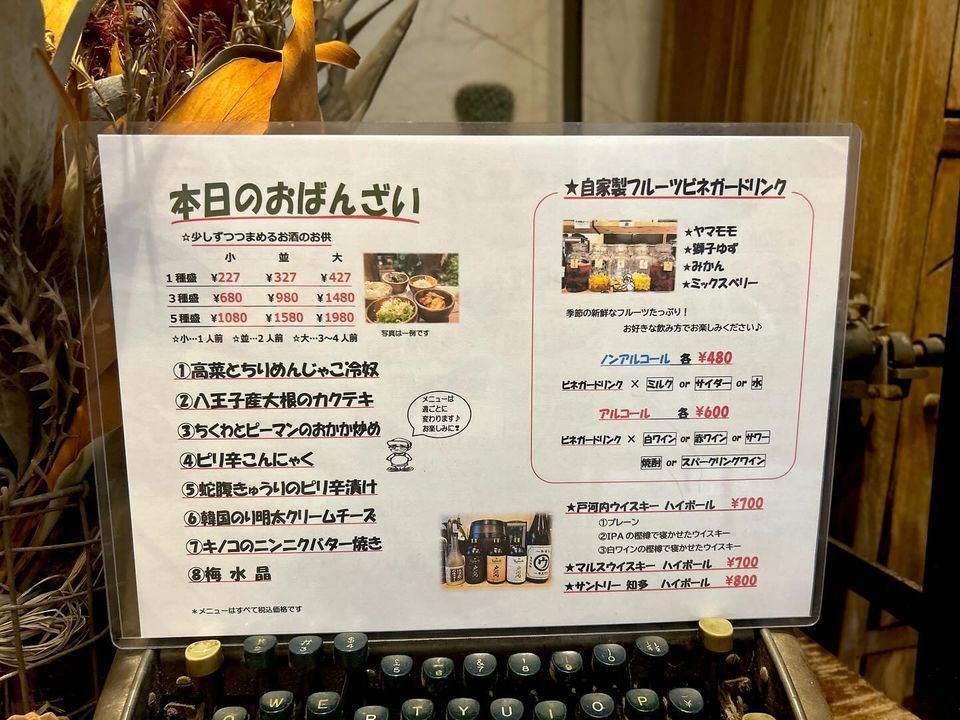 本日のおばんざい
☆少しずつつまめるお酒のお供
小 並 大
1種盛 ¥227 ¥327 ¥427
3種盛 ¥680 ¥980 ¥1480
5種盛 ¥1080 ¥1580 ¥1980
☆小…1人前 ☆並…2人前 ☆大…3~4人前
写真は一例です
①高菜とちりめんじゃこ冷奴
②八王子産大根のカクテキ
③ちくわとピーマンのおかか炒め
④ピリ辛こんにゃく
⑤蛇腹きゅうりのピリ辛漬け
⑥韓国のり明太クリームチーズ
⑦キノコのニンニクバター焼き
⑧梅水晶
メニューは
週ごとに
変わります♪
お楽しみに!
*メニューはすべて税込価格です
★自家製フルーツビネガードリンク
★ヤマモモ
★獅子ゆず
★みかん
★ミックスベリー
季節の新鮮なフルーツたっぷり!
お好きな飲み方でお楽しみください♪
ノンアルコール 各 ¥480
ビネガードリンク × ミルク or サイダー or 水
アルコール 各 ¥600
ビネガードリンク × 白ワイン or 赤ワイン or サワー
焼酎 or スパークリングワイン
★戸河内ウイスキー ハイボール ¥700
①プレーン
②IPAの樫樽で寝かせたウイスキー
③白ワインの樫樽で寝かせたウイスキー
★マルスウイスキー ハイボール ¥700
★サントリー 知多 ハイボール ¥800
Q W E R T Y U I O P